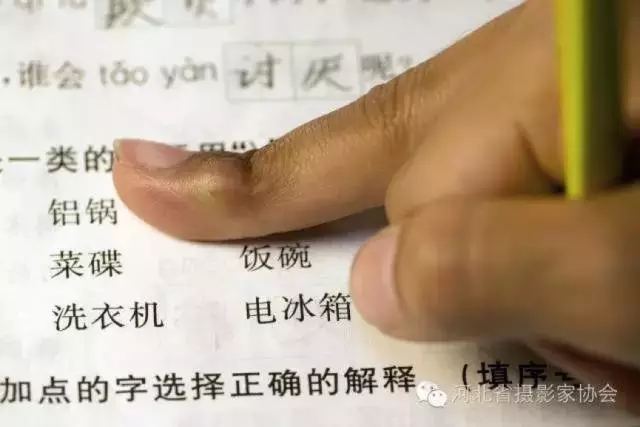 ,谁会 tǎo yàn 讨厌呢?
一类的
铝锅
菜碟 饭碗
洗衣机 电冰箱
加点的字选择正确的解释 (填序
河北省摄影家协会